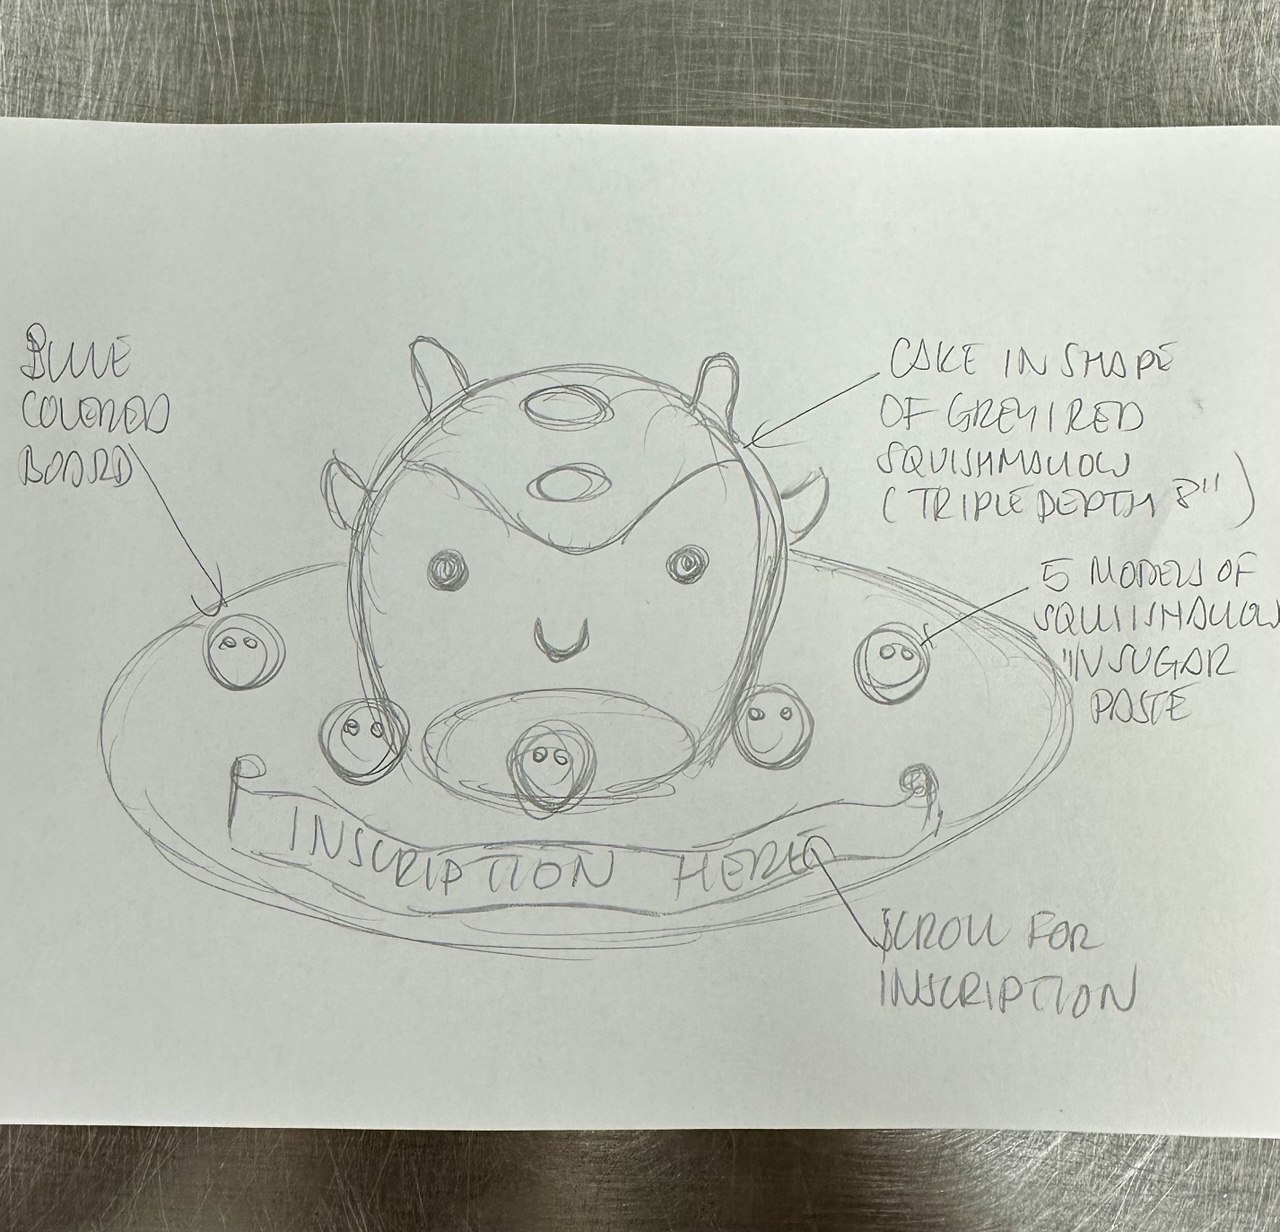 BLUE
COLORED
BOARD
CAKE IN SHAPE
OF GREY/RED
SQUISHMALLOW
(TRIPLE DEPTH 8")
5 MODELS OF
SQUIISHMALLOW
IN SUGAR
PASTE
INSCRIPTION HERE
SCROLL FOR
INSCRIPTION